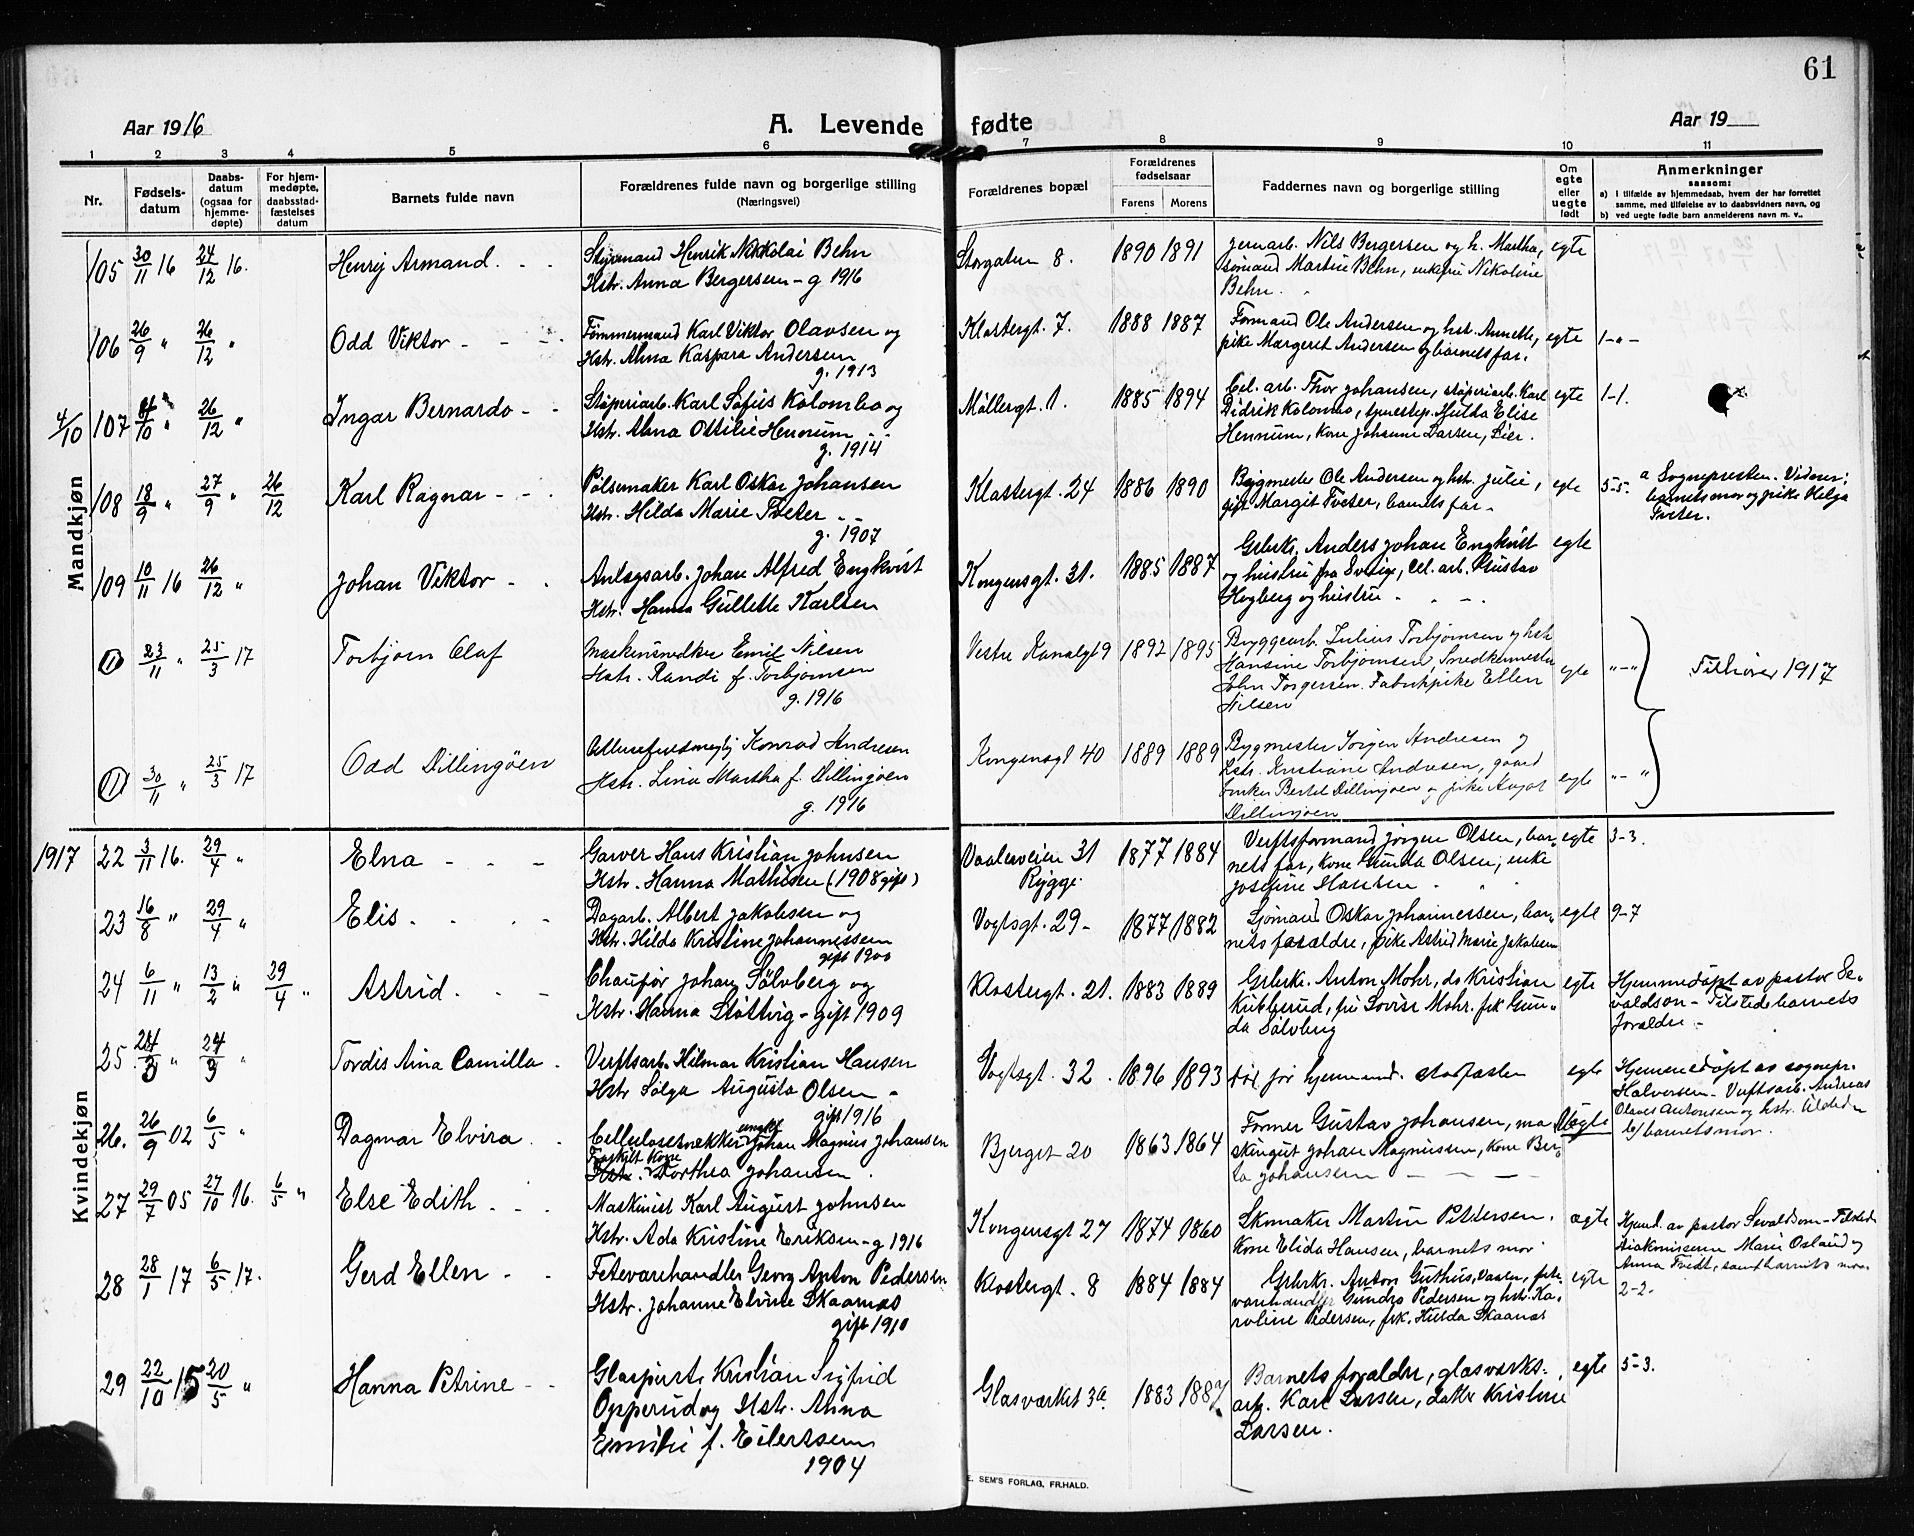 61
Aar 1916
A. Levende fødte
Aar 19
1 2 3 4 5 6 7 8 9 10 11
Nr.
Fødsels-
datum
Daabs-
datum
(ogsaa for
hjemme-
døpte)
For hjem-
medøpte,
daabsstad-
fæstelses
datum
Barnets fulde navn
Forældrenes fulde navn og borgerlige stilling
(Næringsvei)
Forældrenes bopæl
Forældrenes
fødselsaar
Farens Morens
Faddernes navn og borgerlige stilling
Om
egte
eller
uegte
født
Anmerkninger
saasom:
a) I tilfælde av hjemmedaab, hvem der har forrettet
samme, med tilføielse av to daabsvidners navn, og
b) ved uegte fødte barn anmelderens navn m. v..
Mandkjøn
105 30/11 16 24/12 16. Henry Armand
Styrmand Henrik Nikkolai Behn
Hstr. Anna Bergersen - g 1916
Storgaten 8. 1890 1891
jernarb. Nils Bergersen og h. Martha,
sømand Martin Behn, enkefru Nikoline
Behn.
egte
106 26/9 " 26/12 " Odd Viktor
Tømmermand Karl Viktor Olavsen og
Hstr. Alma Kaspara Andersen
g. 1913
Klostergt. 7. 1888 1887
Formand Ole Andersen og hst. Annette,
pike Margeret Andersen og barnets far.
egte 1-"-
4/10 107 /10 " 26/12 " Ingar Bernardo
Støperiarb. Karl Sofus Kolombo og
Hstr. Alma Ottilie Hennum
g. 1914
Møllergt. 1. 1885 1894
Cel. arb. Thor Johansen, støperiarb. Karl
Didrik Kolombo, tjenestep. Hulda Elise
Hennum, Kone Johanne Larsen, Lier.
egte 1-1.
108 18/9 " 27/9 " 26/12 Karl Ragnar
Pølsemaker Karl Oskar Johansen
Hstr. Hilda Marie Tveter
g. 1907
Klostergt. 24 1886 1890
Bygmester Ole Andersen og hst. Julie,
gift Margit Tveter, barnets far.
egte 5-5.
a Sognepresten. Vidner:
barnets mor og pike Helga
Tveter.
109 10/11 16 26/12 " Johan Viktor
Anlægsarb. Johan Alfred Engkvist
Hstr. Hanna Gullette Karlsen
Kongensgt. 31. 1885 1887
Grbrk. Anders Johan Engkvist
og hustru fra Sverige, Cel. arb. Gustav
Hogberg og hustru
egte
11 23/11 " 25/3 17 Torbjørn Olaf
Maskinsnedker Emil Nilsen
Hstr. Randi f. Torbjørnsen
g. 1916
Vestre Kanalgt 9 1892 1895
Byggearb. Julius Torbjørnsen og hst
Hansine Torbjørnsen, Snedkermester
John Torgersen. Fabrikpike Ellen
Nilsen
egte "-"
Tilhører 1917
11 30/11 " 25/3 17 Odd Dillingøen
Konrad Andresen
Hstr. Lina Martha f. Dillingøen
g. 1916
Kongensgt 40 1889 1889
Bygmester Jørgen Andresen og
hstr. Kristiane Andresen, gaard
bruker Bertel Dillingøen og pike Aagot
Dillingøen
egte "-"
Kvindekjøn
1917 22 3/11 16. 29/4 " Elna
Garver Hans Kristian Johnsen
Hstr. Hanna Mathisen (1908 gift)
Vaaleveien 31
Rygge
1877 1884
Verftsformand Jørgen Olsen, bar-
nets far, kone Gunda Olsen, enke
Josefine Hansen
egte 3-3.
23 16/8 " 29/4 " Elis
Dagarb. Albert Jakobsen og
Hstr. Hilda Kristine Johannessen
gift 1900
Vogtsgt. 29 - 1877 1882
Sjømand Oskar Johannessen, bar-
nets foræl­dre, pike Astrid Marie Jakobsen
egte 9-7
24 6/11 " 13/2 " 29/4 " Astrid
Chauffør Johan Sølvberg og
Hstr. Hanna Støttvig - gift 1909
Klostergt. 21. 1883 1889
Grbrk. Anton Mohr, do Kristian
Kikkerud, fru Lovise Mohr. frk Gun-
da Sølvberg
egte
Hjemmedøpt av pastor Se-
valdson - Tilstede barnets
forældre -
25 24/3 " 24/3 " Tordis Aina Camilla
Verftsarb. Hilmar Kristian Hansen
Hstr Solga Augusta Olsen -
gift 1916
Vogtsgt. 32 1896 1893
død før hjemmed. stadfæsten
egte
Hjemmedøpt av sognepr.
Halvorsen - Verftsarb. Andreas
Olaves Antonsen og hstr.
b/ barnets mor.
26. 26/9 02 6/5 " Dagmar Elvira
Cellulosesnekker ungkf Johan Magnus Johansen
Fraskilt Kone
Hstr. Dorthea Johansen
Bjerget 20 1863 1864
Former Gustav Johansen, ma-
skingut Johan Magnussen, Kone Ber-
ta Johansen
Uegte
27 29/7 05 27/10 16. 6/5 " Else Edith
Maskinist Karl August Johnsen
Hstr. Ada Kristine Eriksen - g 1916
Kongensgt 27 1874 1860
Skomaker Martin Pettersen,
Kone Elida Hansen, barnets mor
ægte
Hjemd. av pastor Sevaldson - Tilstede
diakonissene Marie Osland og
Anna Tvedt, samt barnets mor
28 28/1 17 6/5 17. Gerd Ellen
Fetevarehandler Georg Anton Pedersen
Hstr. Johanne Elvine Skaanas
gift 1910
Klostergt. 8 1884 1884
Grbrk. Anton Guthus, Vaaler, fete-
varehandler Gundro Pedersen og hst. Ka-
roline Pedersen, frk. Hulda Skaanas
egte 2-2.
29 22/10 15 20/5 " Hanna Petrine
Glaspust. Kristian Sigfrid
Opperud og Hstr. Anna
Emilie f. Eilertsen
1904
Glasværket 3a 1883 1887
Barnets forældre, glasværks-
arb. Karl Larsen, datter Kristine
Larsen.
egte 5-3.
E. SEM'S FORLAG, FR.HALD.